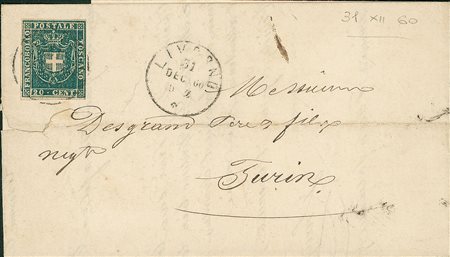 31 XII 60
FRANCOBOLLO
POSTALE
TOSCANO
20 CENT
LIVORNO
31
DEC. 60
Messieurs
Desgrand Père & fils
negts
Turin